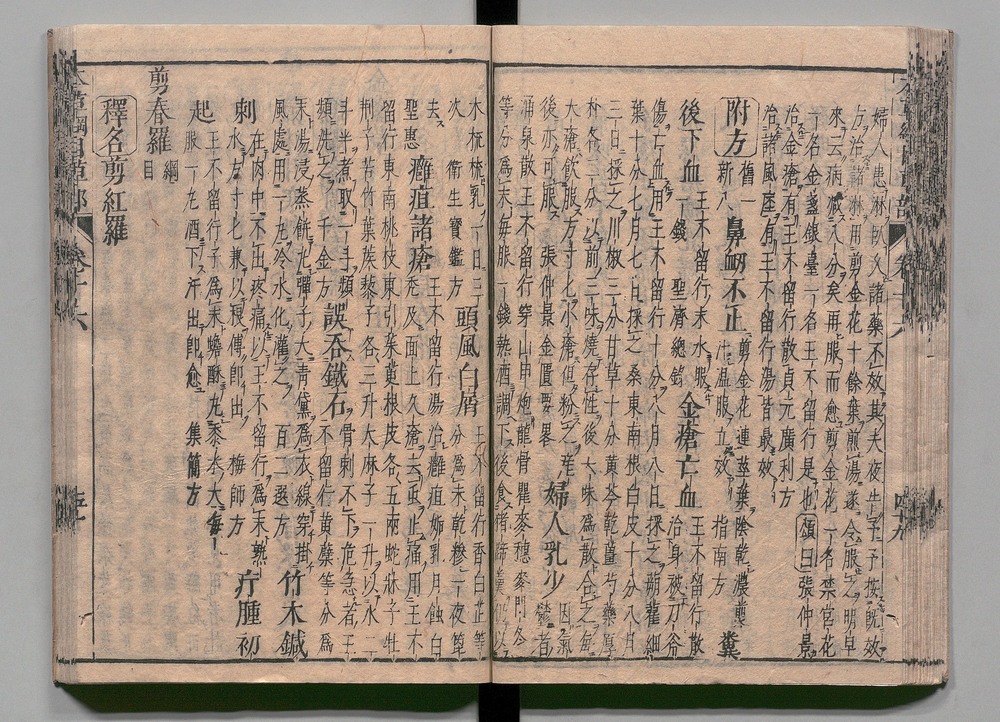 婦人患淋臥久諸藥不效其夫夜告予予按既效
方治諸淋用剪金花十餘葉煎湯遂令服之明早
來云病減八分矣再服而愈剪金花一名禁宮花
一名金盞銀臺一名王不留行是也頌曰張仲景
治金瘡有王不留行散貞元廣利方
治諸風痙有王不留行湯皆最效
附方 舊一 新八 鼻衄不止 剪金花連莖葉陰乾濃煎汁溫服立效 指南方 糞
後下血 王不留行末水服一錢 聖濟總錄 金瘡亡血 王不留行散治身被刀斧
傷亡血用王不留行十分八月八日採之蒴藋細
葉十分七月七日採之桑東南根白皮十分八月
三日採之川椒三分甘草十分黃芩乾薑芍藥厚
朴各二分以前三味燒存性後六味為散合之每
大瘡飲服方寸匕小瘡但粉之產
後亦可服 張仲景金匱要畧 婦人乳少 因氣鬱者
涌泉散王不留行穿山甲炮龍骨瞿麥穗麥門冬
等分為末每服一錢熱酒調下後食猪蹄羹仍以
木梳梳乳一日三
次 衛生寶鑑方 頭風白屑 王不留行香白芷等分為末乾摻一夜篦
去 聖惠方 癰疽諸瘡 王不留行湯治癰疽妬乳月蝕白
禿及面上久瘡去虫止痛用王不
留行東南桃枝東引茱萸根皮各五兩蛇牀子牡
荊子苦竹葉蒺藜子各三升大麻子一升以水二
斗半煮取一斗頻
頻洗之 千金方 誤吞鐵石 骨刺不下危急者王
不留行黃蘗等分為
末湯浸蒸餅丸彈子大青黛為衣線穿掛
風處用一丸冷水化灌之 百一選方 竹木鍼
刺 在肉中不出疼痛以王不留行為末熟
水方寸匕兼以根傅即出 梅師方 疔腫初
起 王不留行子為末蟾酥丸黍米大每
服一丸酒下汗出即愈 集簡方
剪春羅 綱目
釋名 剪紅羅